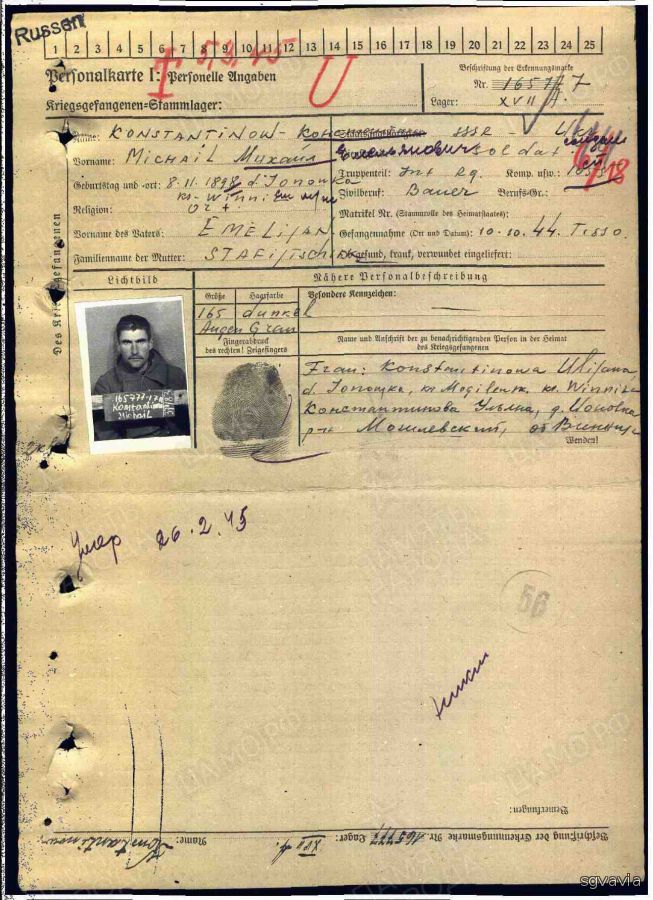 Russen
1 2 3 4 5 6 7 8 9 10 11 12 13 14 15 16 17 18 19 20 21 22 23 24 25
5.3.45
Personalkarte I: Personelle Angaben
U
Beschriftung der Erkennungsmarke
Nr. 165777
Kriegsgefangenen-Stammlager:
Lager: XVII A.
Des Kriegsgefangenen
Name: KONSTANTINOW
SSSR - Ukr
Vorname: MICHAIL Михаил
Емельянович
soldat
Geburtstag und -ort: 8.11.1898 d.Jonowka
Truppenteil: Inf Rg. Komp. usw.:
Religion: Or +
Zivilberuf: Bauer Berufs-Gr.:
Matrikel Nr. (Stammrolle des Heimatstaates):
Vorname des Vaters: EMELIJAN
Gefangennahme (Ort und Datum): 10.10.44. Tisso.
Familienname der Mutter:
Ob gesund, krank, verwundet eingeliefert:
Lichtbild
Nähere Personalbeschreibung
Größe Haarfarbe Besondere Kennzeichen:
165 dunkel
Augen Grau
Fingerabdruck
des rechten! Zeigefingers
Name und Anschrift der zu benachrichtigenden Person in der Heimat
des Kriegsgefangenen
165777-17A
Konstantinow
Michail
Frau: Konstantinowa Ulijana
Константинова Ульяна, д.
р-н Могилевский, об Винница
Wenden!
Умер 26.2.45
56
Bemerkungen:
Beschriftung der Erkennungsmarke Nr. 165777 Lager: XVII A.
Name: Konstantinow
ЦАМО.РФ
sgvavia